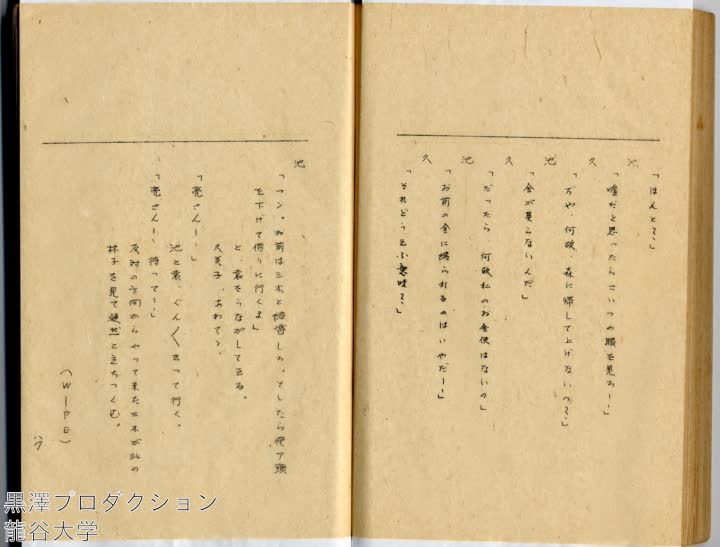 「ほんと？」
池
「嘘だと思ったらこいつの眼を見ろ！」
久
「ぢや、何故、森に帰して上げないの？」
池
「金が足らないんだ」
久
「だったら、何故私のお金使はないの」
池
「お前の金に縛られるのはいやだ！」
久
「それどう云ふ意味？」
池
「フン。お前は三木と結婚しろ。そしたら俺ア頭
を下げて借りに行くよ」
と、素をうながして去る。
久美子、あわてゝ、
「亮さん！」
池と素、ぐん〱去って行く。
「亮さん！ 待って！」
反対の方向からやって来た三木が此の
様子を見て凝然と立ちつくす。
（WIPE）
黒澤プロダクション
龍谷大学